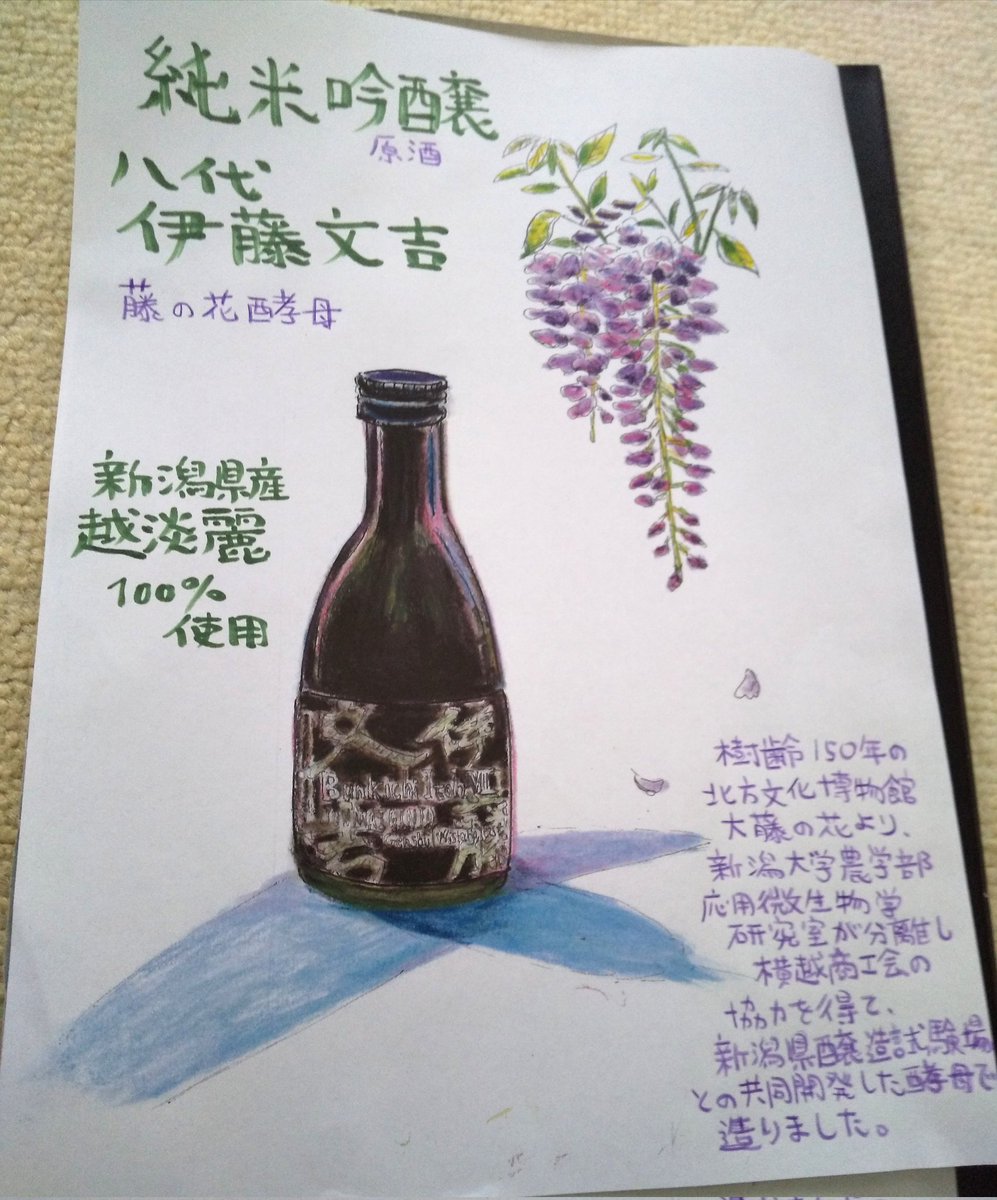 純米吟醸
原酒
八代
伊藤文吉
藤の花酵母
新潟県産
越淡麗
100%
使用
文 伊
Bunkichi Itoh VIII
吉 藤
樹齢150年の
北方文化博物館
大藤の花より、
新潟大学農学部
応用微生物学
研究室が分離し
横越商工会の
協力を得て、
新潟県醸造試験場
との共同開発した酵母で
造りました。